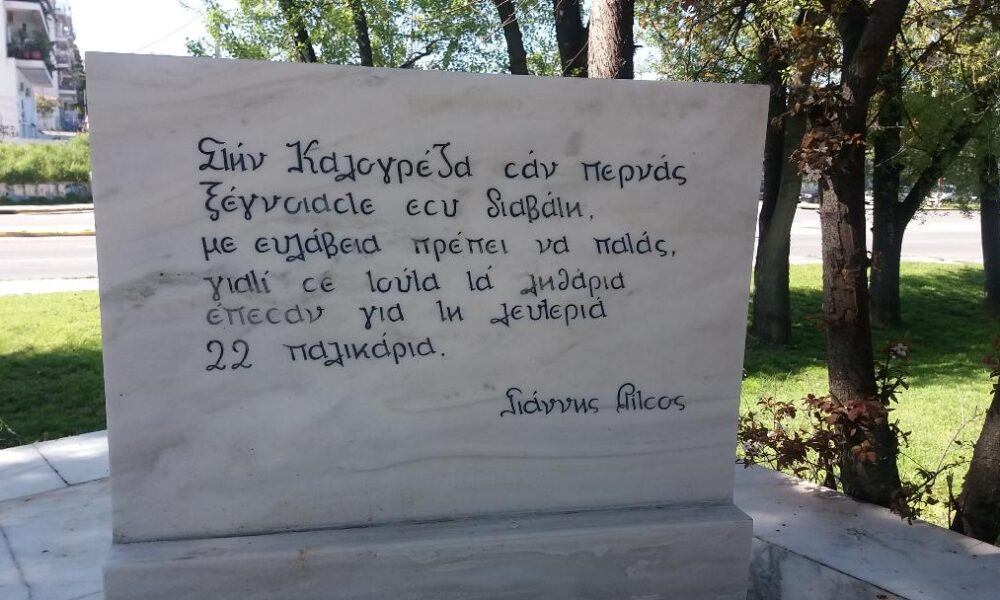 Στήν Καλογρέζα σάν περνάς
ξέγνοιαστε εσύ διαβάτη,
με ευλάβεια πρέπει να πατάς,
γιατί σε τούτα τά λιθάρια
έπεσαν για τη λευτεριά
22 παλικάρια.
Γιάννης Ρίτσος